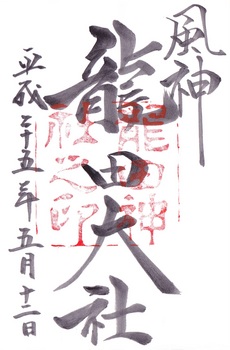 風神
龍田大社
龍田神社之印
平成二十五年五月十二日